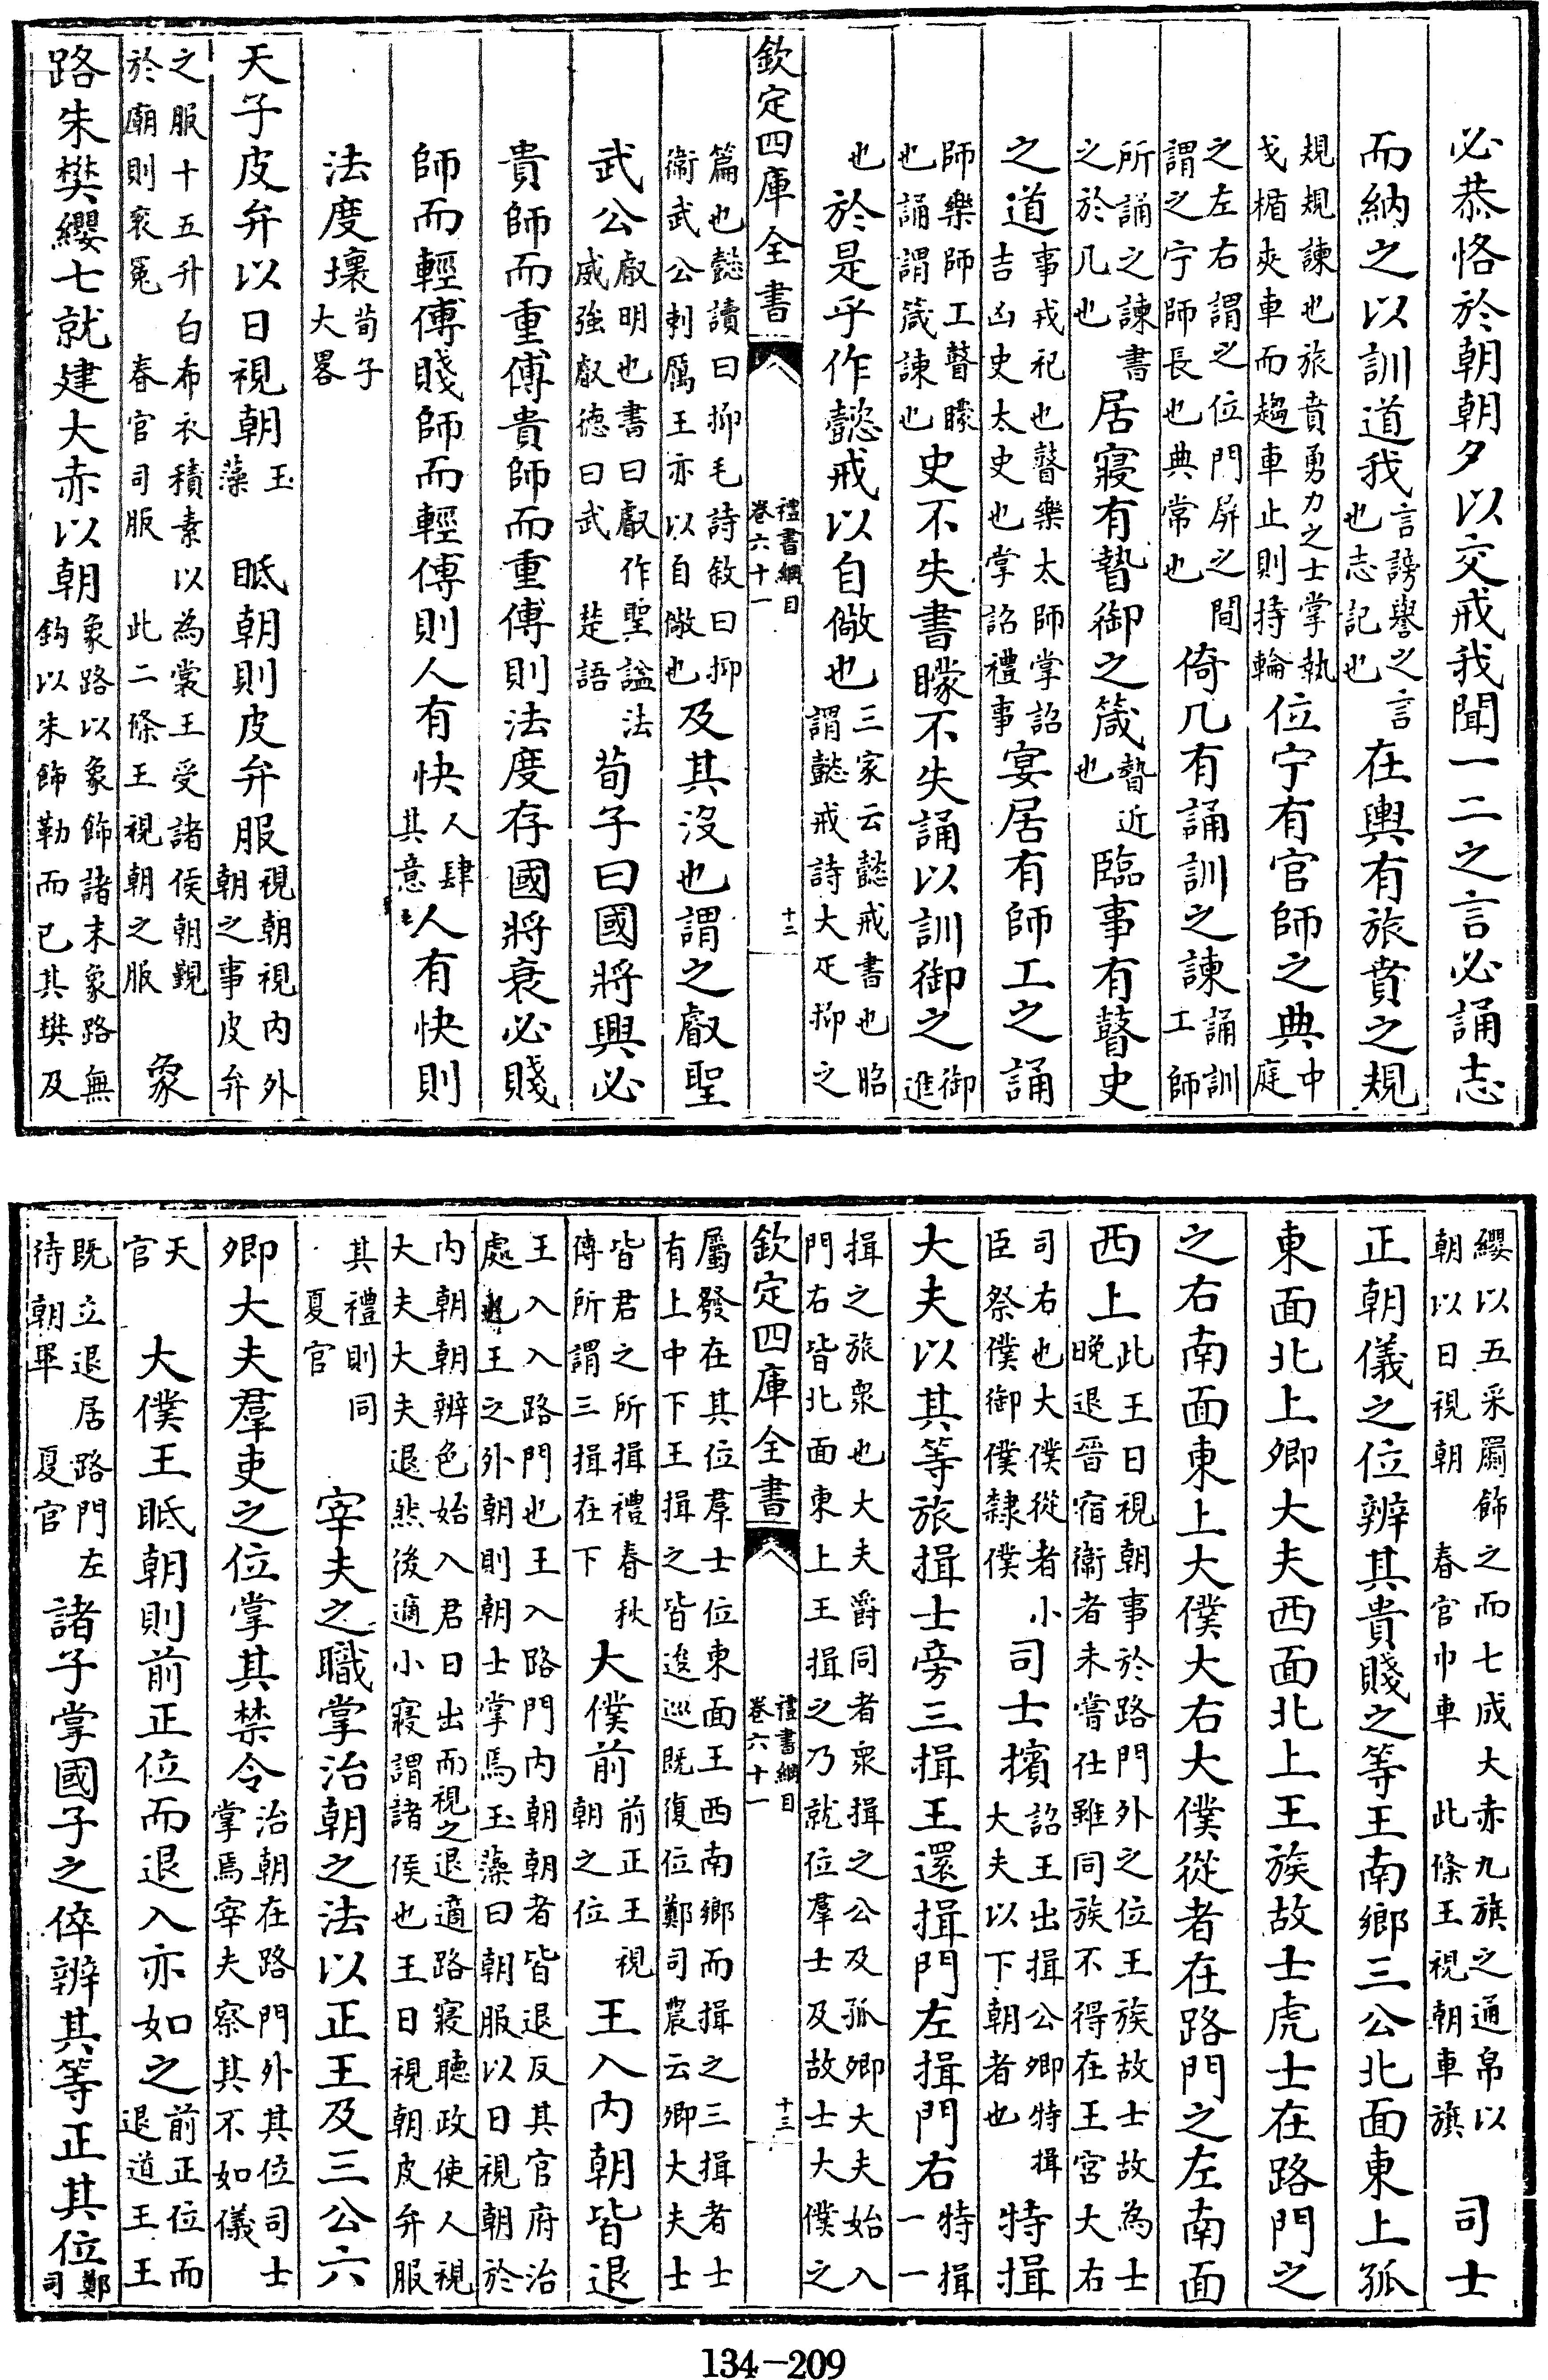 必恭恪於朝朝夕以交戒我聞一二之言必誦志
而納之以訓道我言謗譽之言也志記也在輿有旅賁之規
規規諫也旅賁勇力之士掌執戈楯夾車而趨車止則持輪位宁有官師之典中庭
之左右謂之位門屏之間謂之宁師長也典常也倚几有誦訓之諫誦訓工師
所誦之諫書之於几也居寢有暬御之箴暬近也臨事有瞽史
之道事戎祀也瞽樂太師掌詔吉凶史太史也掌詔禮事宴居有師工之誦
師樂師工瞽矇也誦謂箴諫也史不失書矇不失誦以訓御之御進
也於是乎作懿戒以自儆也三家云懿戒書也昭謂懿戒詩大疋抑之
欽定四庫全書 禮書綱目 卷六十一 十二
篇也懿讀曰抑毛詩敘曰抑衛武公刺厲王亦以自儆也及其沒也謂之叡聖
武公叡明也書曰叡作聖謚法威強叡德曰武 楚語荀子曰國將興必
貴師而重傅貴師而重傅則法度存國將衰必賤
師而輕傅賤師而輕傅則人有快人肆其意人有快則
法度壞荀子大畧
天子皮弁以日視朝玉藻 眡朝則皮弁服視朝視內外朝之事皮弁
之服十五升白布衣積素以為裳王受諸侯朝覲於廟則衮冕 春官司服 此二條王視朝之服 象
路朱樊纓七就建大赤以朝象路以象飾諸末象路無鈎以朱飾勒而已其樊及
纓以五采罽飾之而七成大赤九旗之通帛以朝以日視朝 春官巾車 此條王視朝車旗 司士
正朝儀之位辨其貴賤之等王南鄉三公北面東上孤
東面北上卿大夫西面北上王族故士虎士在路門之
之右南面東上大僕大右大僕從者在路門之左南面
西上此王日視朝事於路門外之位王族故士故為士晚退晋宿衛者未嘗仕雖同族不得在王宮大右
司右也大僕從者小臣祭僕御僕隸僕司士擯詔王出揖公卿大夫以下朝者也特揖特揖
大夫以其等旅揖士旁三揖王還揖門左揖門右特揖一一
揖之旅衆也大夫爵同者衆揖之公及孤卿大夫始入門右皆北面東上王揖之乃就位羣士及故士大僕之
欽定四庫全書 禮書綱目 卷六十一 十三
屬發在其位羣士位東面王西南鄉而揖之三揖者士有上中下王揖之皆逡巡既復位鄭司農云卿大夫士
皆君之所揖禮春秋傳所謂三揖在下大僕前前正王視朝之位王入內朝皆退
王入入路門也王入路門內朝朝者皆退反其官府治處也王之外朝則朝士掌焉玉藻曰朝服以日視朝於
內朝朝辨色始入君日出而視之退適路寢聽政使人視大夫大夫退然後適小寢謂諸侯也王日視朝皮弁服
其禮則同 夏官 宰夫之職掌治朝之法以正王及三公六
卿大夫羣吏之位掌其禁令治朝在路門外其位司士掌焉宰夫察其不如儀
天官 大僕王眡朝則前正位而退入亦如之前正位而退道王王
既立退居路門左待朝畢 夏官 諸子掌國子之倅辨其等正其位鄭司
134-209